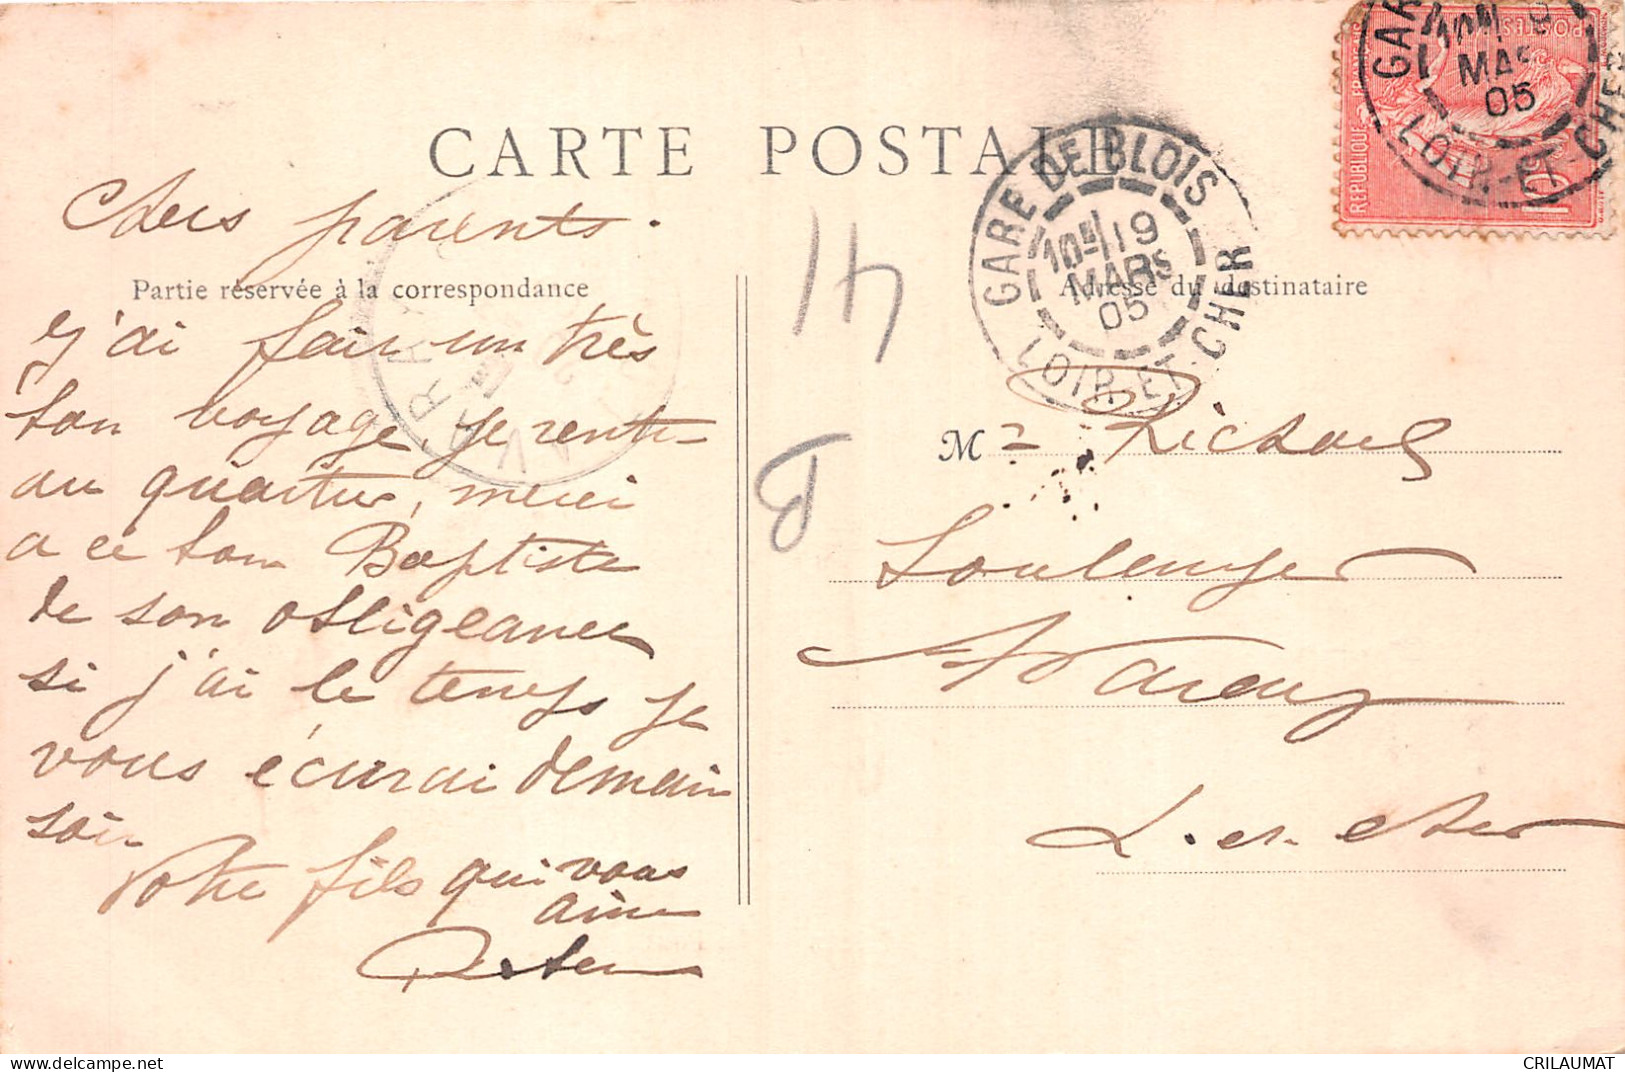 CARTE POSTALE
Chers parents.
Partie réservée à la correspondance
Adresse du destinataire
j'ai fait un très
bon voyage, je rent-
au quartier, merci
a ce bon Baptiste
de son obligeance
si j'ai le temps je
vous écrirai demain
soir
Votre fils qui vous
aime
M
Richard
Boulanger
Naveil
L. et. cher
41
B
GARE DE BLOIS
10 19
MARS
05
LOIR-ET-CHER
GAR
MARS
05
LOIR-ET-CHER
REPUBLIQUE FRANÇAISE
POSTES
10
CRILAUMAT